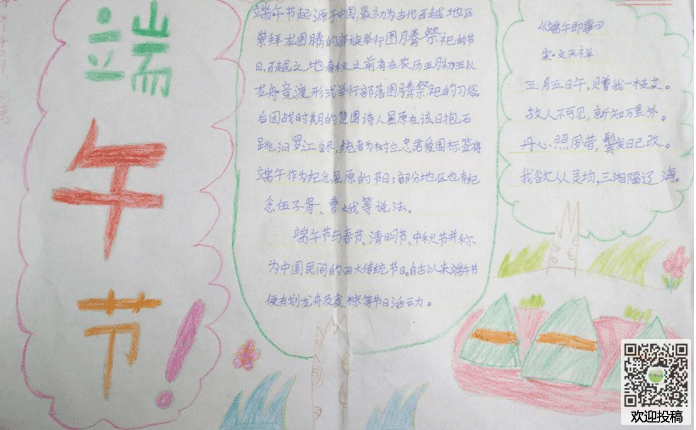 端
午
节
！
端午节起源于中国,最初为古代百越地区
崇拜龙图腾的部族举行图腾祭祀的节
日,百越之地春秋之前有在农历五月初五以
龙舟竞渡形式举行部落图腾祭祀的习俗。
后因战时期的楚国诗人屈原在该日抱石
跳汨罗江自尽,统者为树立忠君爱国标签将
端午作为纪念屈原的节日;部分地区也有纪
念伍子胥、曹娥等说法。
端午节与春节、清明节、中秋节并称
为中国民间的四大传统节日。自古以来端午节
便有划龙舟及食粽等节日活动。
《端午即事》
宋·文天祥
五月五日午,贝曾我一枝艾。
故人不可见,新知万里外。
丹心照夙昔,鬓发日已改。
我欲从灵均,三湘隔辽海。
欢迎投稿